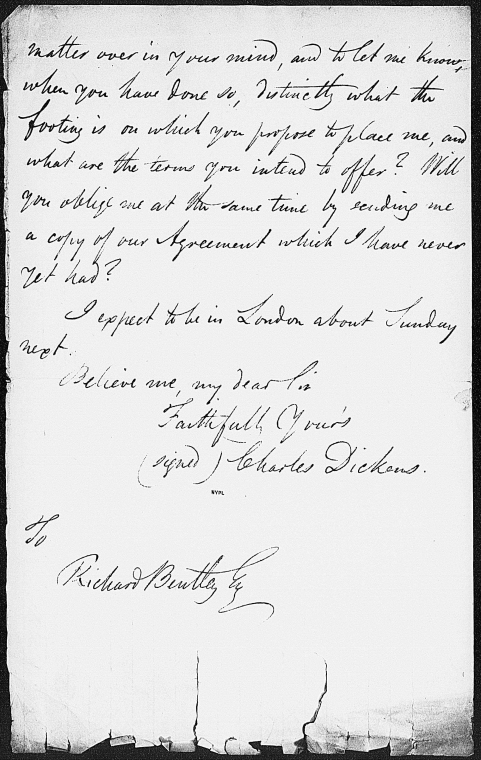 matter over in your mind, and to let me know,
when you have done so, distinctly what the
footing is on which you propose to place me, and
what are the terms you intend to offer? Will
you oblige me at the same time by sending me
a copy of our Agreement which I have never
yet had?
I expect to be in London about Sunday
next.
Believe me, my dear Sir
Faithfully Yours
(signed) Charles Dickens.
NYPL
To
Richard Bentley Esq